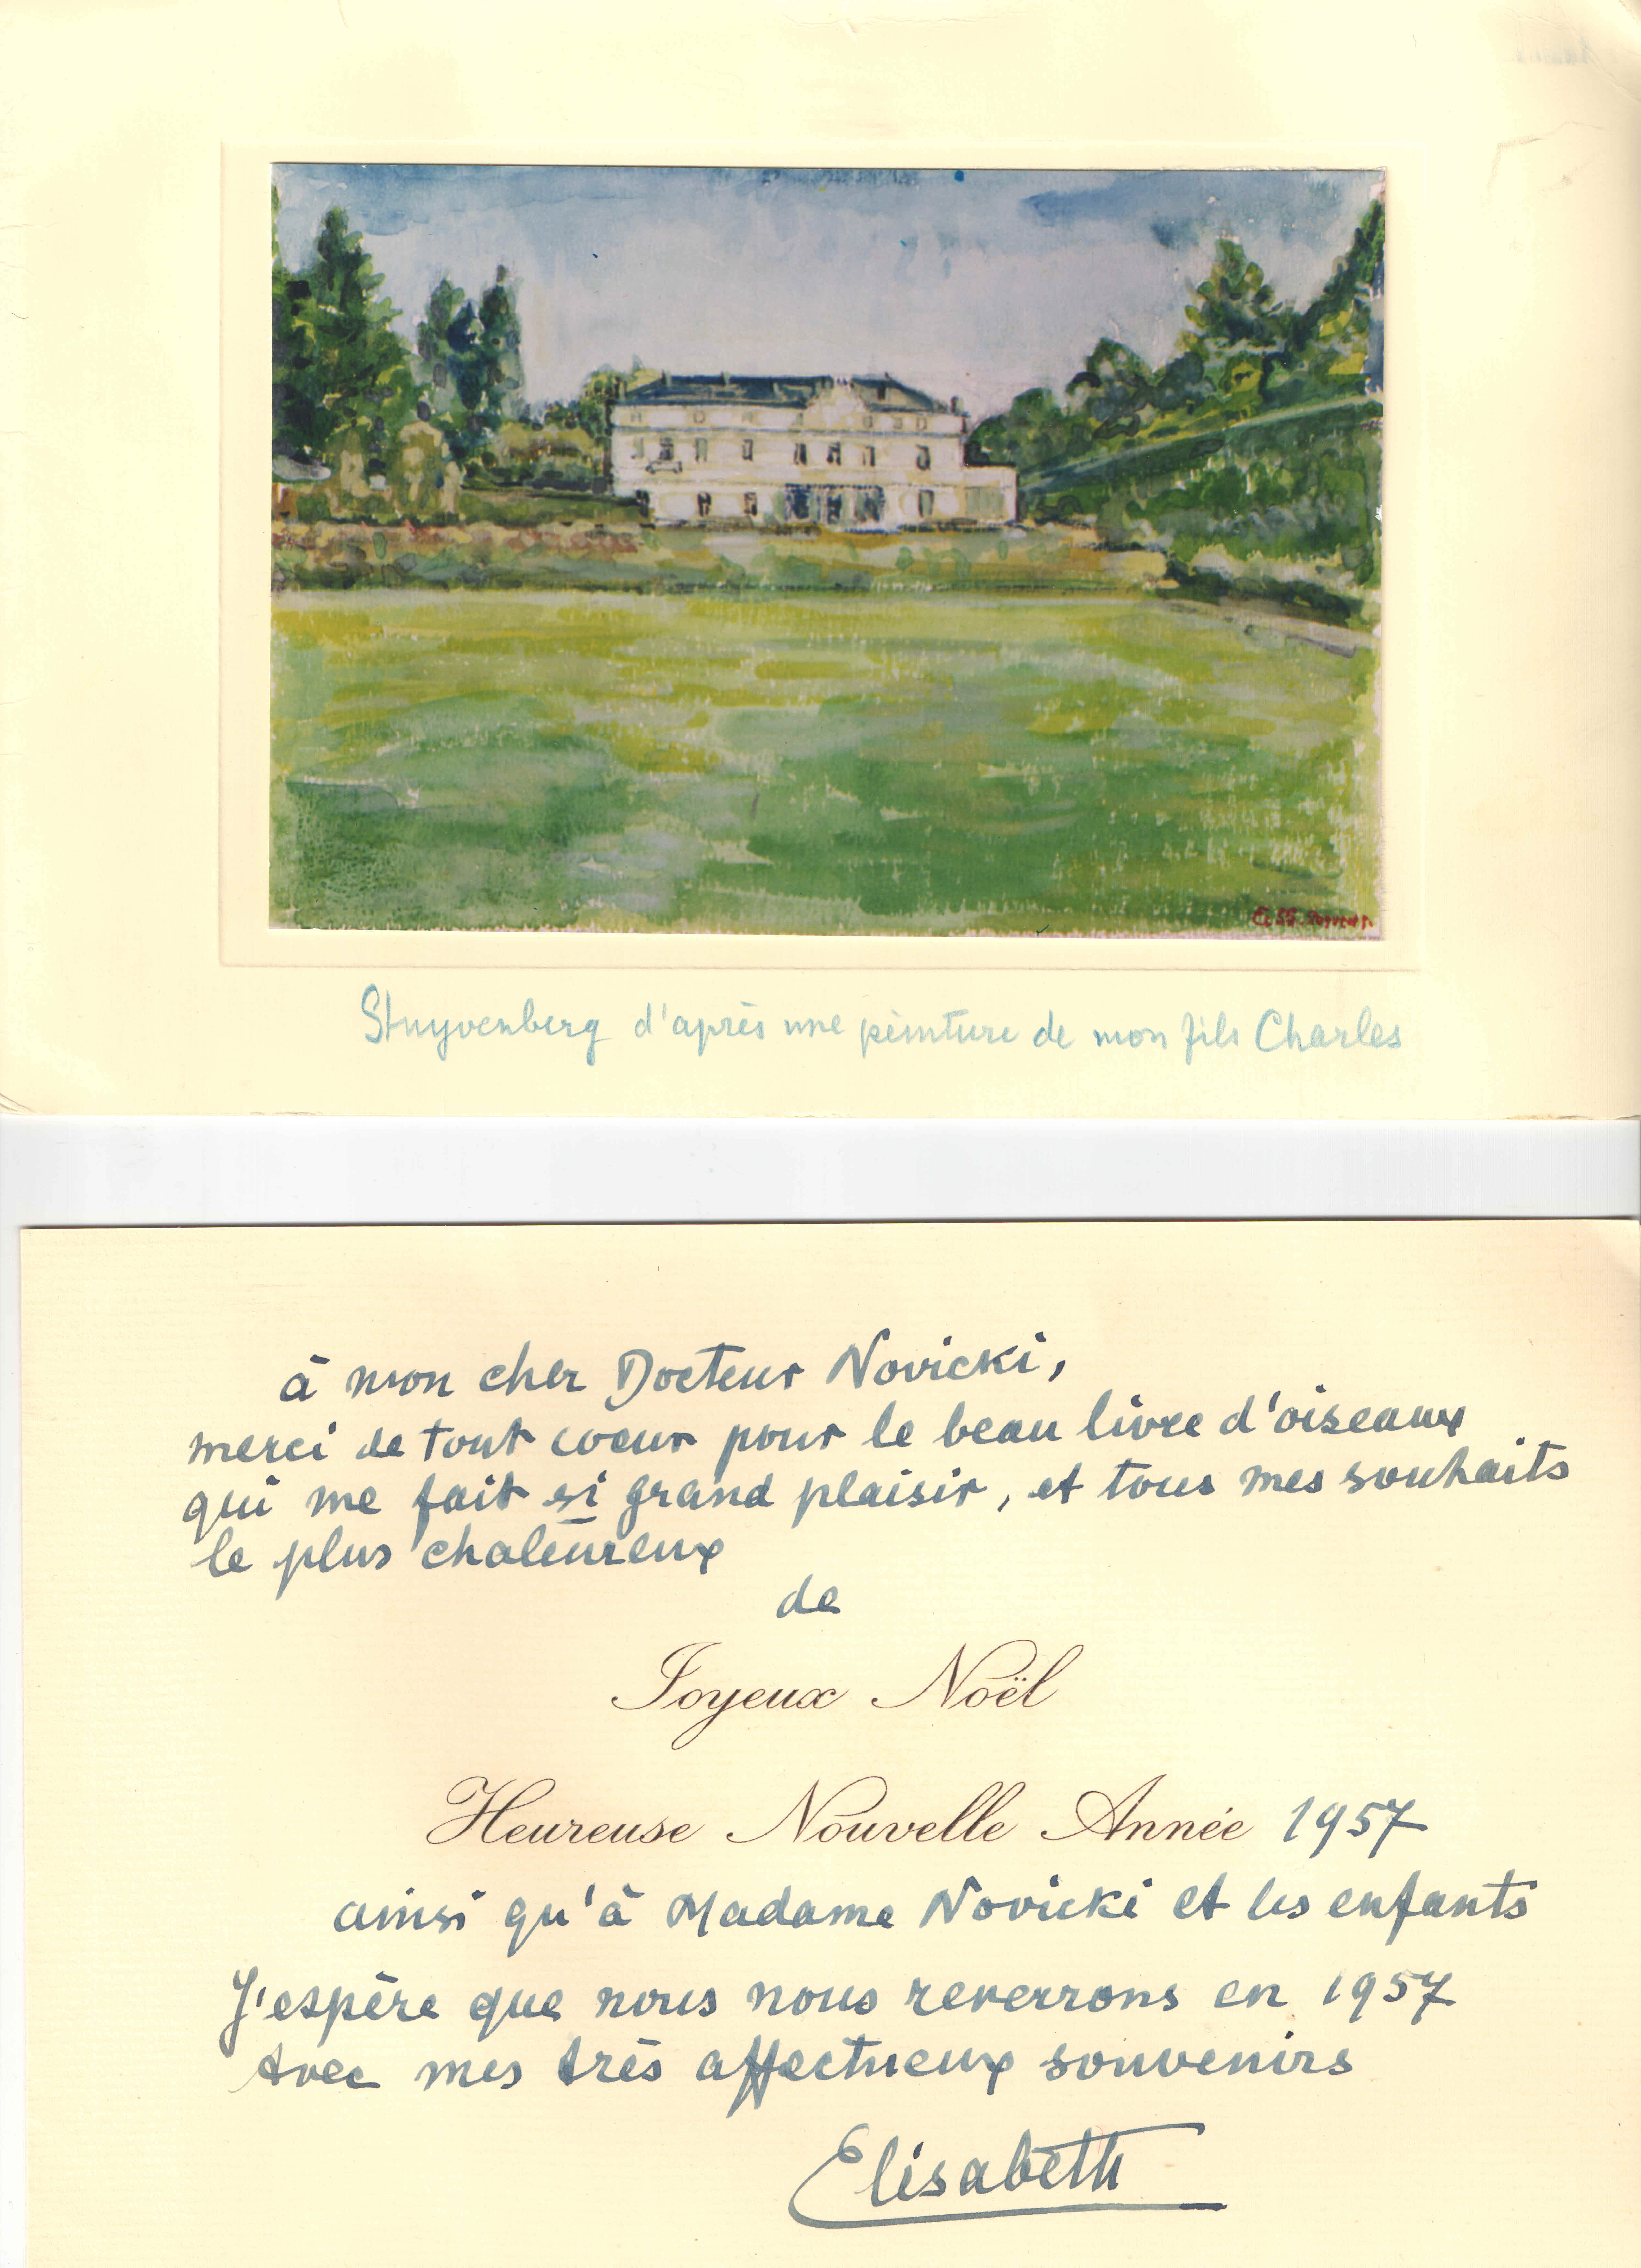 Stuyvenberg d'après une peinture de mon fils Charles
à mon cher Docteur Novicki,
merci de tout coeur pour le beau livre d'oiseaux
qui me fait si grand plaisir, et tous mes souhaits
le plus chaleureux
de
Joyeux Noël
Heureuse Nouvelle Année 1957
ainsi qu'à Madame Novicki et les enfants
J'espère que nous nous reverrons en 1957
avec mes très affectueux souvenirs
Elisabeth